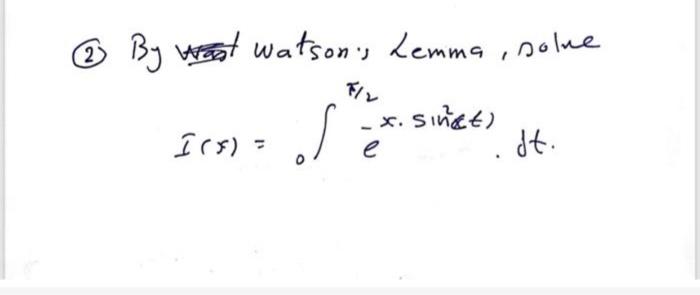 ② By Watson's Lemma, solve
I(x) = ₀∫^{π/2} e^{-x. sin²(t)} . dt.